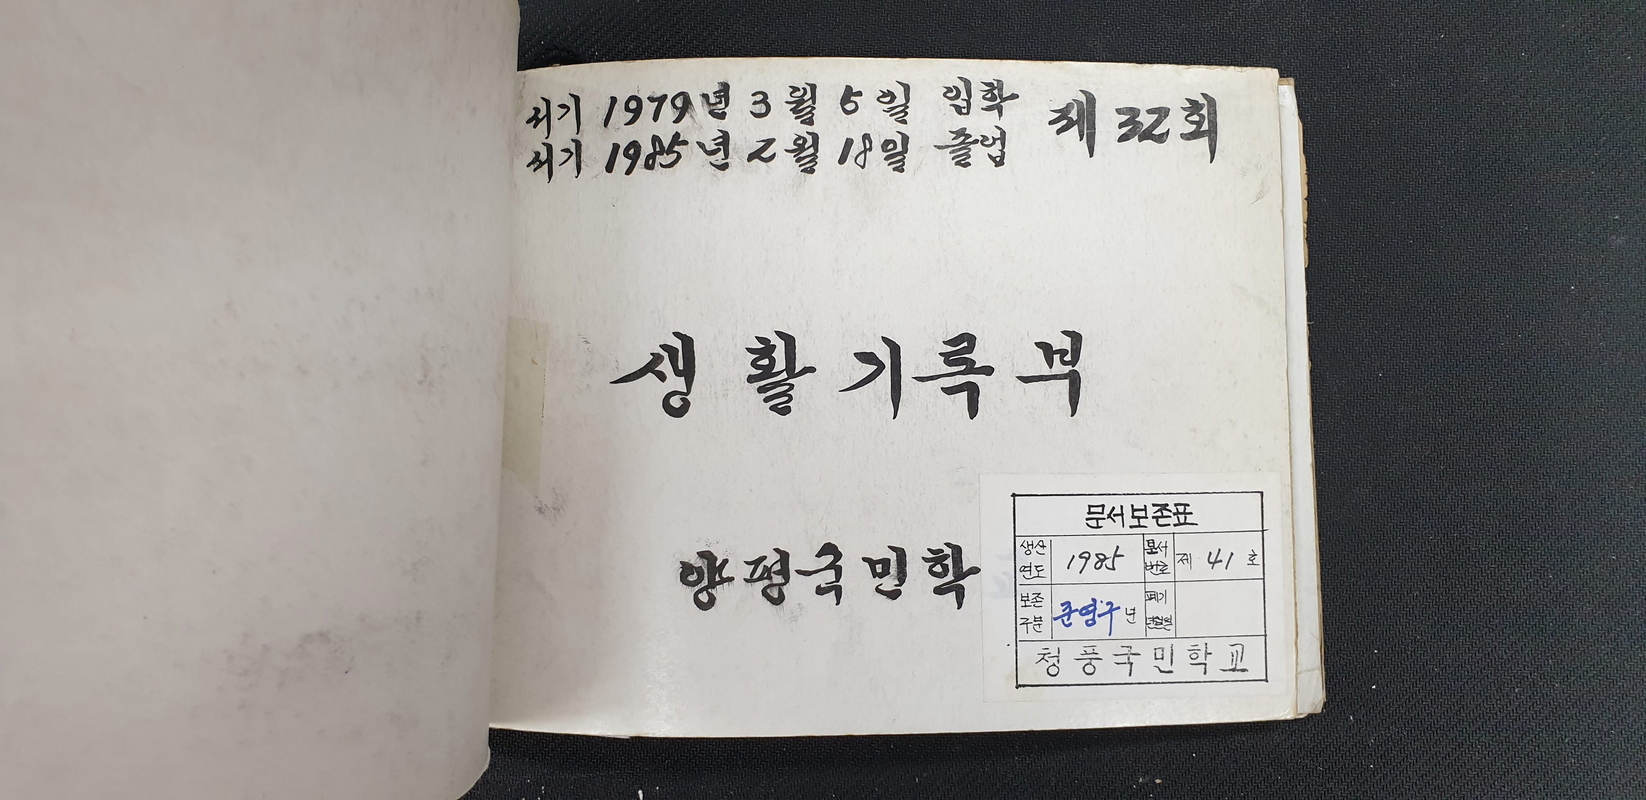 서기 1979년 3월 5일 입학
서기 1985년 2월 18일 졸업
제 32회
생활기록부
양평국민학
문서보존표
생산연도 1985 문서번호 제 41 호
보존구분 준영구 년 폐기
청풍국민학교